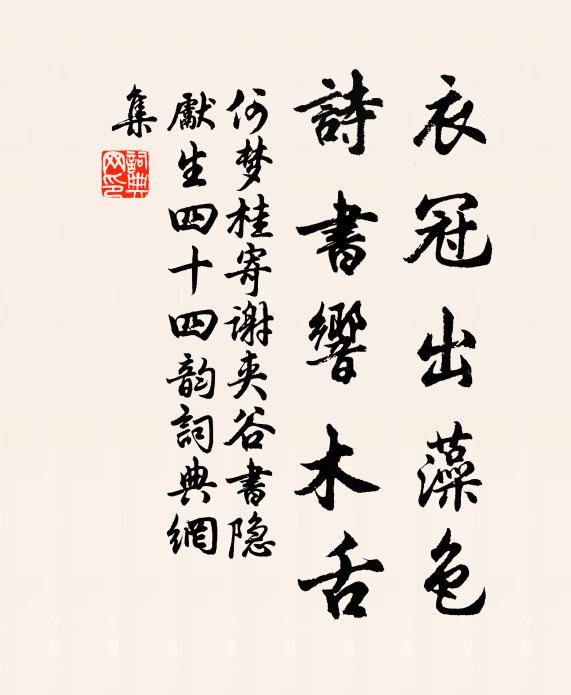 衣冠出藻色
詩書響木舌
何梦桂寄谢夹谷書隐
獻生四十四韵詞典網
集
詞典网印